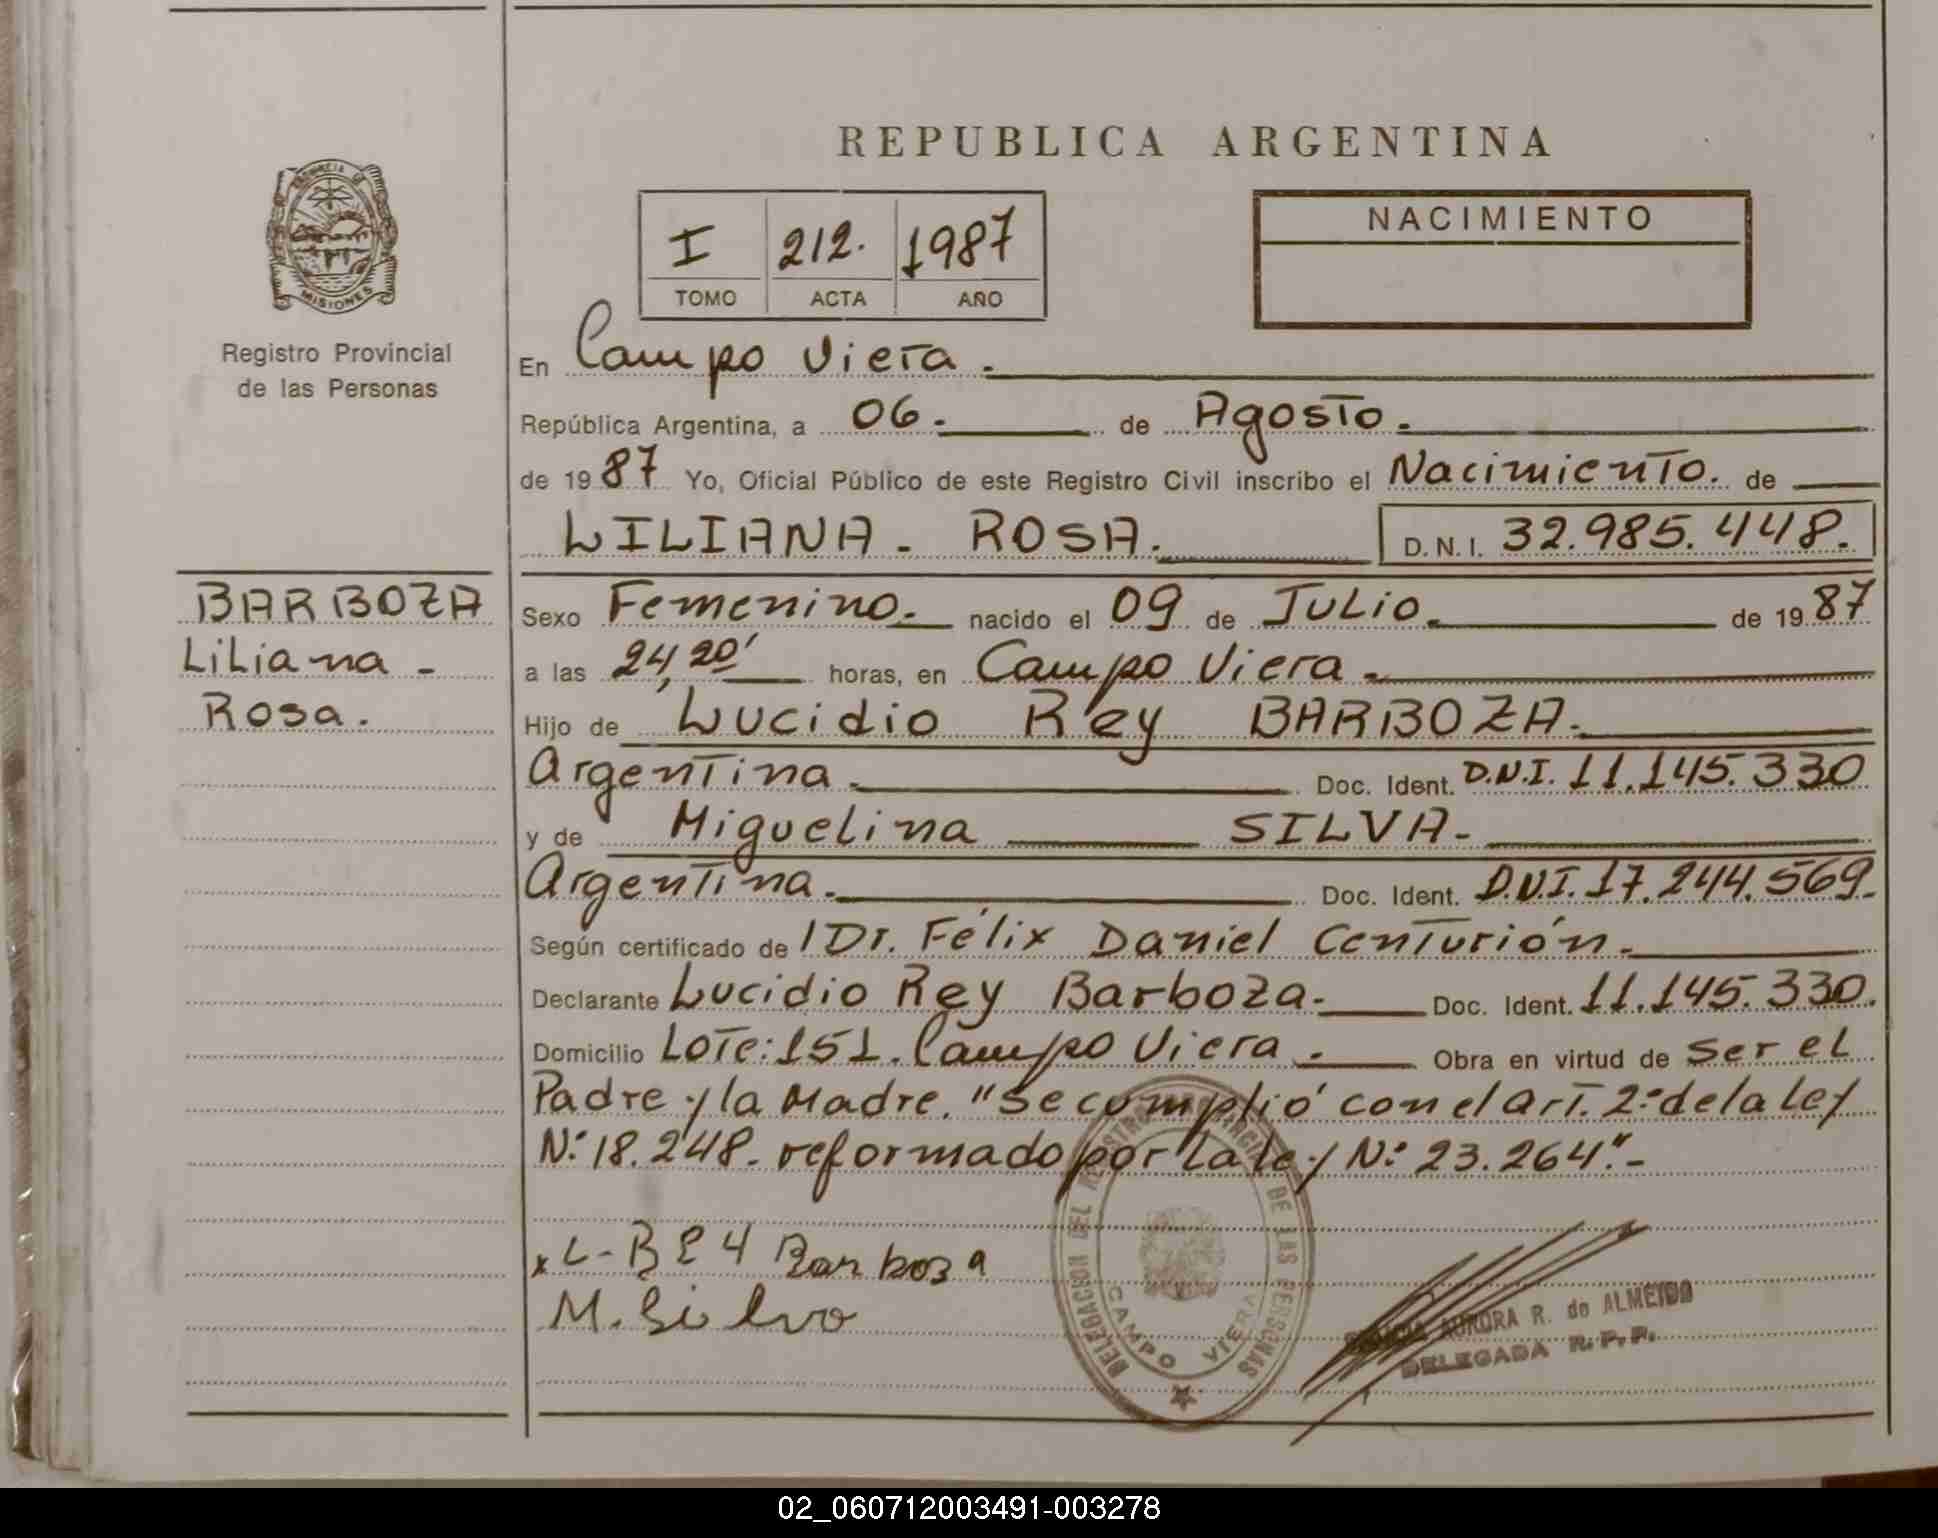 REPUBLICA ARGENTINA
PROVINCIA DE
MISIONES
Registro Provincial
de las Personas
I 212. 1987
TOMO ACTA AÑO
NACIMIENTO
En Campo Viera.
República Argentina, a 06. de Agosto.
de 1987 Yo, Oficial Público de este Registro Civil inscribo el Nacimiento. de
LILIANA - ROSA. D.N.I. 32.985.448.
BARBOZA
Liliana -
Rosa.
Sexo Femenino. nacido el 09 de Julio. de 1987
a las 24,20' horas, en Campo Viera.
Hijo de Lucidio Rey BARBOZA.
Argentina. Doc. Ident. D.N.I. 11.145.330
y de Miguelina SILVA-
Argentina. Doc. Ident. D.N.I. 17.244.569.
Según certificado de l Dr. Félix Daniel Centurión.
Declarante Lucidio Rey Barboza. Doc. Ident. 11.145.330.
Domicilio Lote: 151. Campo Viera. Obra en virtud de ser el
Padre y la Madre. "Se cumplió con el art. 2º de la Ley
Nº 18.248. reformado por la ley Nº 23.264".-
x L-BE4 Barboza
M. Silva
DELEGACION DEL REGISTRO PROVINCIAL DE LAS PERSONAS
CAMPO VIERA
AURORA R. de ALMEIDA
DELEGADA R. P. P.
02_060712003491-003278